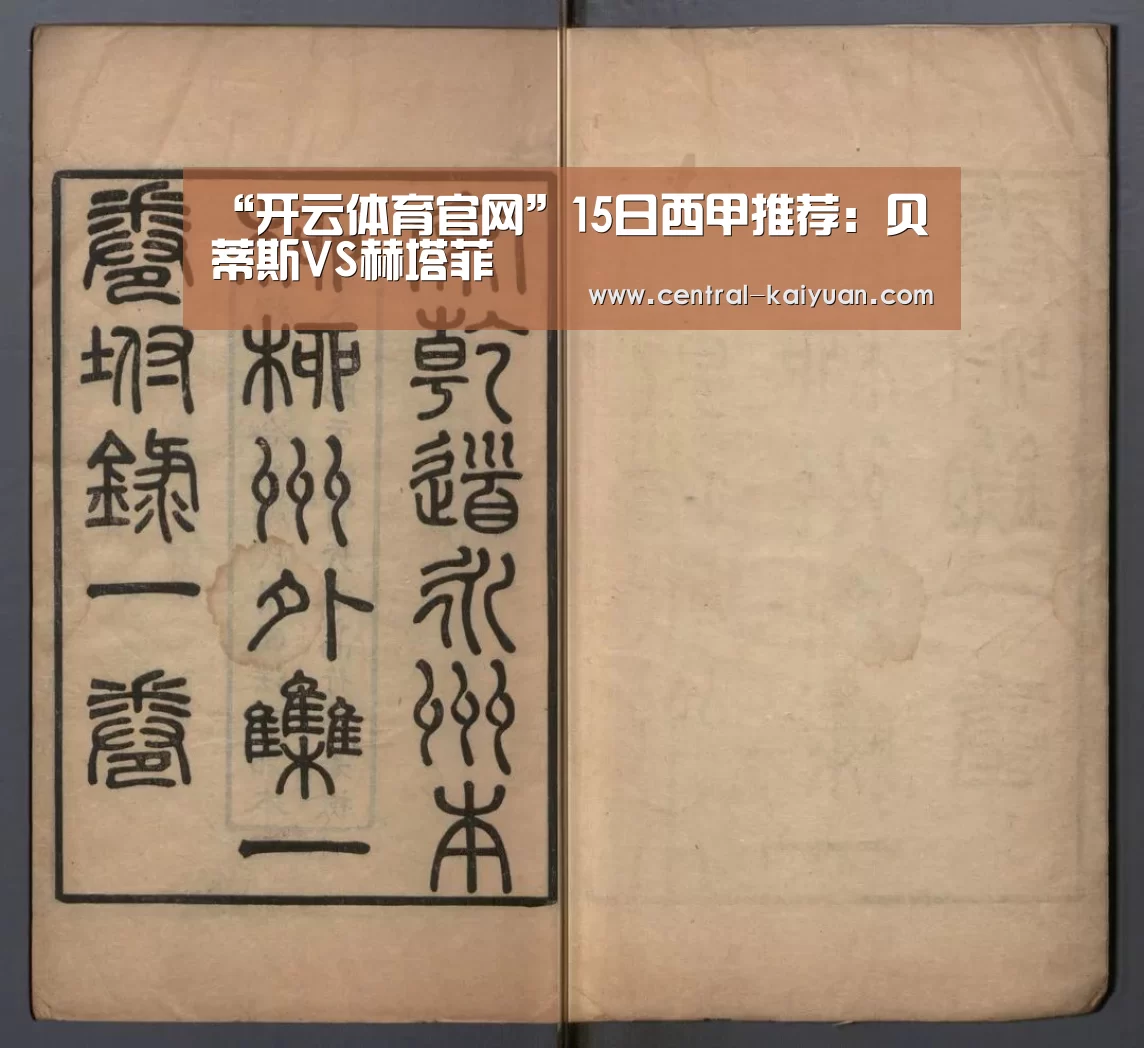 “开云体育官网”15日西甲推荐：贝
蒂斯VS赫塔菲
www.central-kaiyuan.com
乾道永州本
柳州外集一
卷坿錄一卷